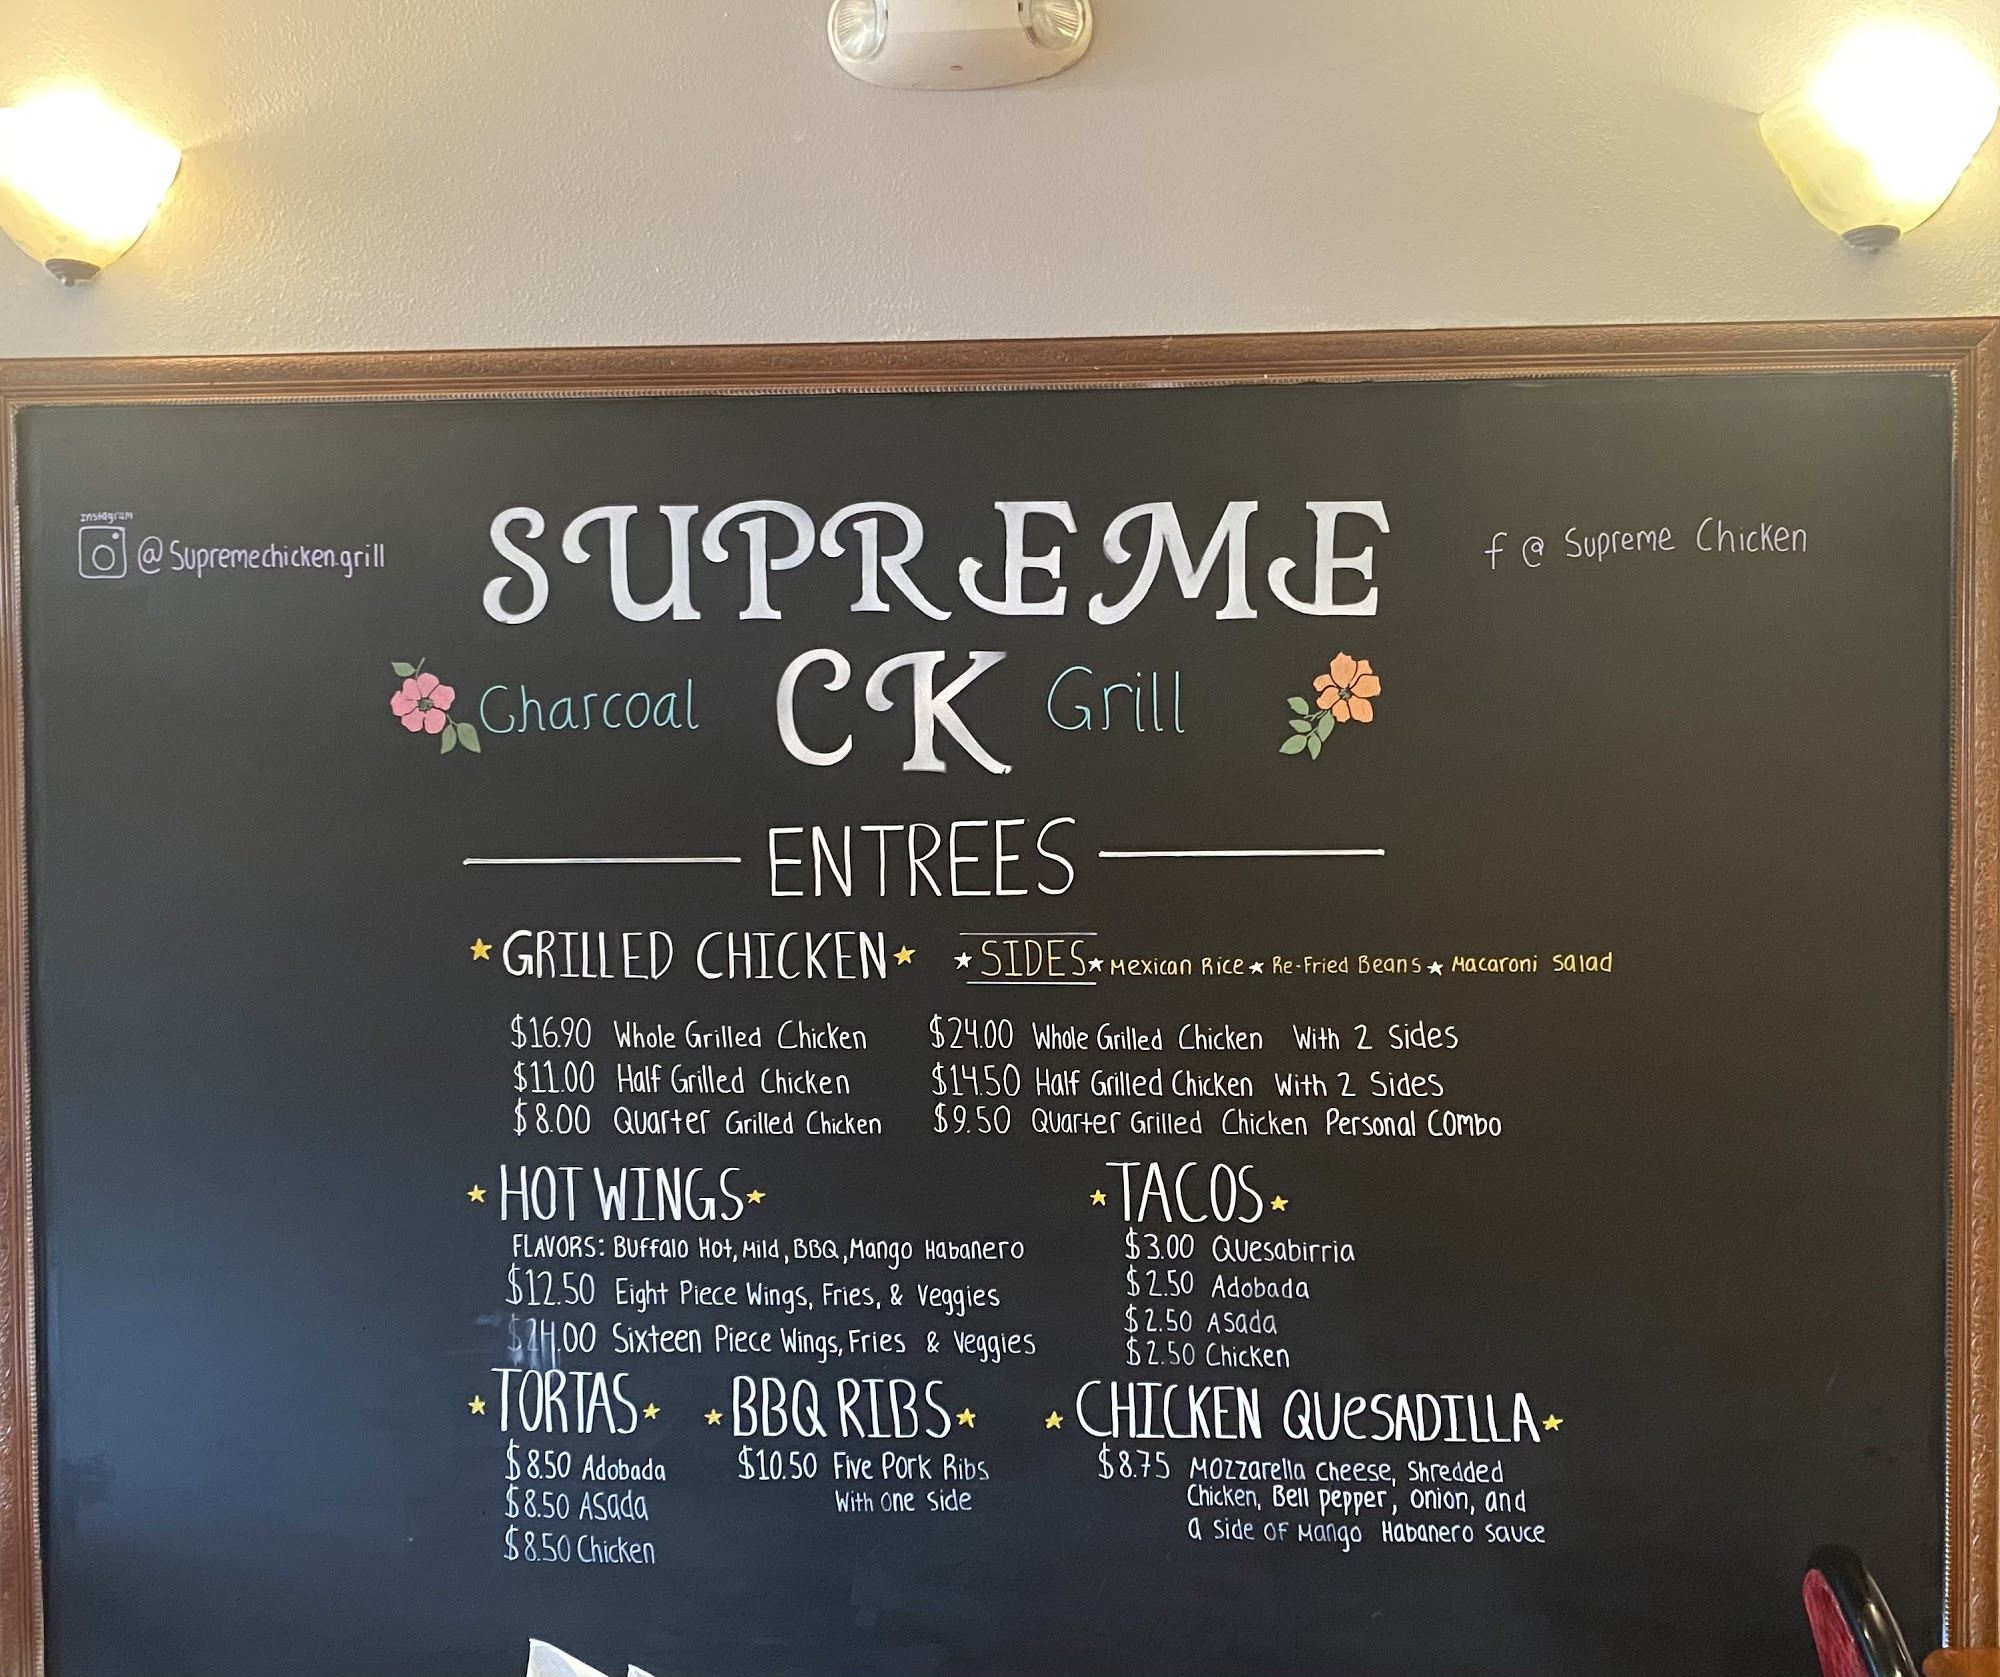 Instagram
@Supremechicken.grill
SUPREME
f @ Supreme Chicken
Charcoal CK Grill
ENTREES
GRILLED CHICKEN
SIDES Mexican Rice Re-Fried Beans Macaroni Salad
$16.90 Whole Grilled Chicken
$11.00 Half Grilled Chicken
$8.00 Quarter Grilled Chicken
$24.00 Whole Grilled Chicken With 2 Sides
$14.50 Half Grilled Chicken With 2 Sides
$9.50 Quarter Grilled Chicken Personal Combo
HOT WINGS
FLAVORS: Buffalo Hot, Mild, BBQ, Mango Habanero
$12.50 Eight Piece Wings, Fries, & Veggies
$24.00 Sixteen Piece Wings, Fries & Veggies
TACOS
$3.00 Quesabirria
$2.50 Adobada
$2.50 Asada
$2.50 Chicken
TORTAS
$8.50 Adobada
$8.50 Asada
$8.50 Chicken
BBQ RIBS
$10.50 Five Pork Ribs
With one side
CHICKEN QUESADILLA
$8.75 Mozzarella Cheese, Shredded
Chicken, Bell pepper, onion, and
a side of Mango Habanero sauce